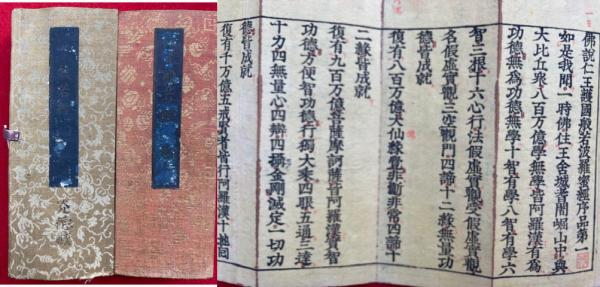 佛說仁王護國般若波羅蜜經序品第一
如是我聞一時佛住王舍城耆闍崛山中與
大比丘衆八百萬億學無學皆阿羅漢有為
功德無為功德無學十智有學八智有學六
智三根十六心行法假虛實觀受假虛實觀
名假虛實觀三空觀門四諦十二緣無量功
德皆成就
復有八百萬億大仙緣覺非斷非常四諦十
二緣皆成就
復有九百萬億菩薩摩訶薩皆阿羅漢實智
功德方便智功德行獨大乘四眼五通三達
十力四無量心四辯四攝金剛滅定一切功
德皆成就
復有千万億五戒賢者皆行阿羅漢十地回